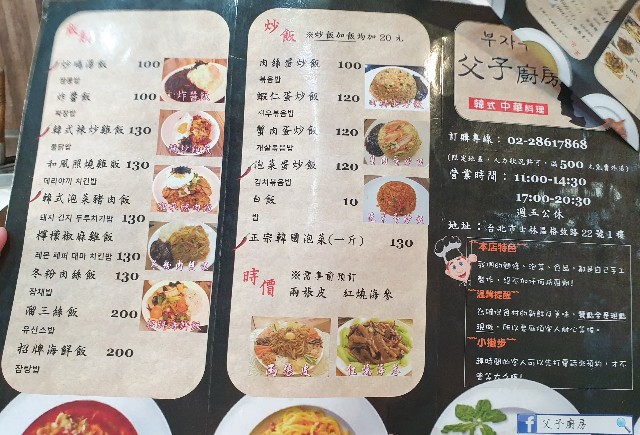 炒碼湯飯 100
짬뽕밥
炸醬飯 100
짜장밥
韓式辣炒雞飯 130
불닭밥
和風照燒雞飯 130
데리야끼 치킨밥
韓式泡菜豬肉飯
돼지 김치 두루치기밥 130
檸檬椒麻雞飯
레몬 페퍼 대마 치킨밥 130
冬粉肉絲飯 130
잡채밥
溜三絲飯 200
유산스밥
招牌海鮮飯 200
잡탕밥
炒飯 ※炒飯加飯均加20元
肉絲蛋炒飯 100
볶음밥
蝦仁蛋炒飯 120
새우볶음밥
蟹肉蛋炒飯 120
게살볶음밥
泡菜蛋炒飯 120
김치볶음밥
白飯 10
밥
正宗韓國泡菜(一斤) 130
時價
※需事前預訂
兩張皮 紅燒海參
兩張皮
父子廚房
韓式 中華料理
訂購專線: 02-28617868
營業時間: 11:00-14:30
17:00-20:30
週五公休
地址: 台北市士林區格致路22號1樓
本店特色
溫馨提醒
小撇步
父子廚房